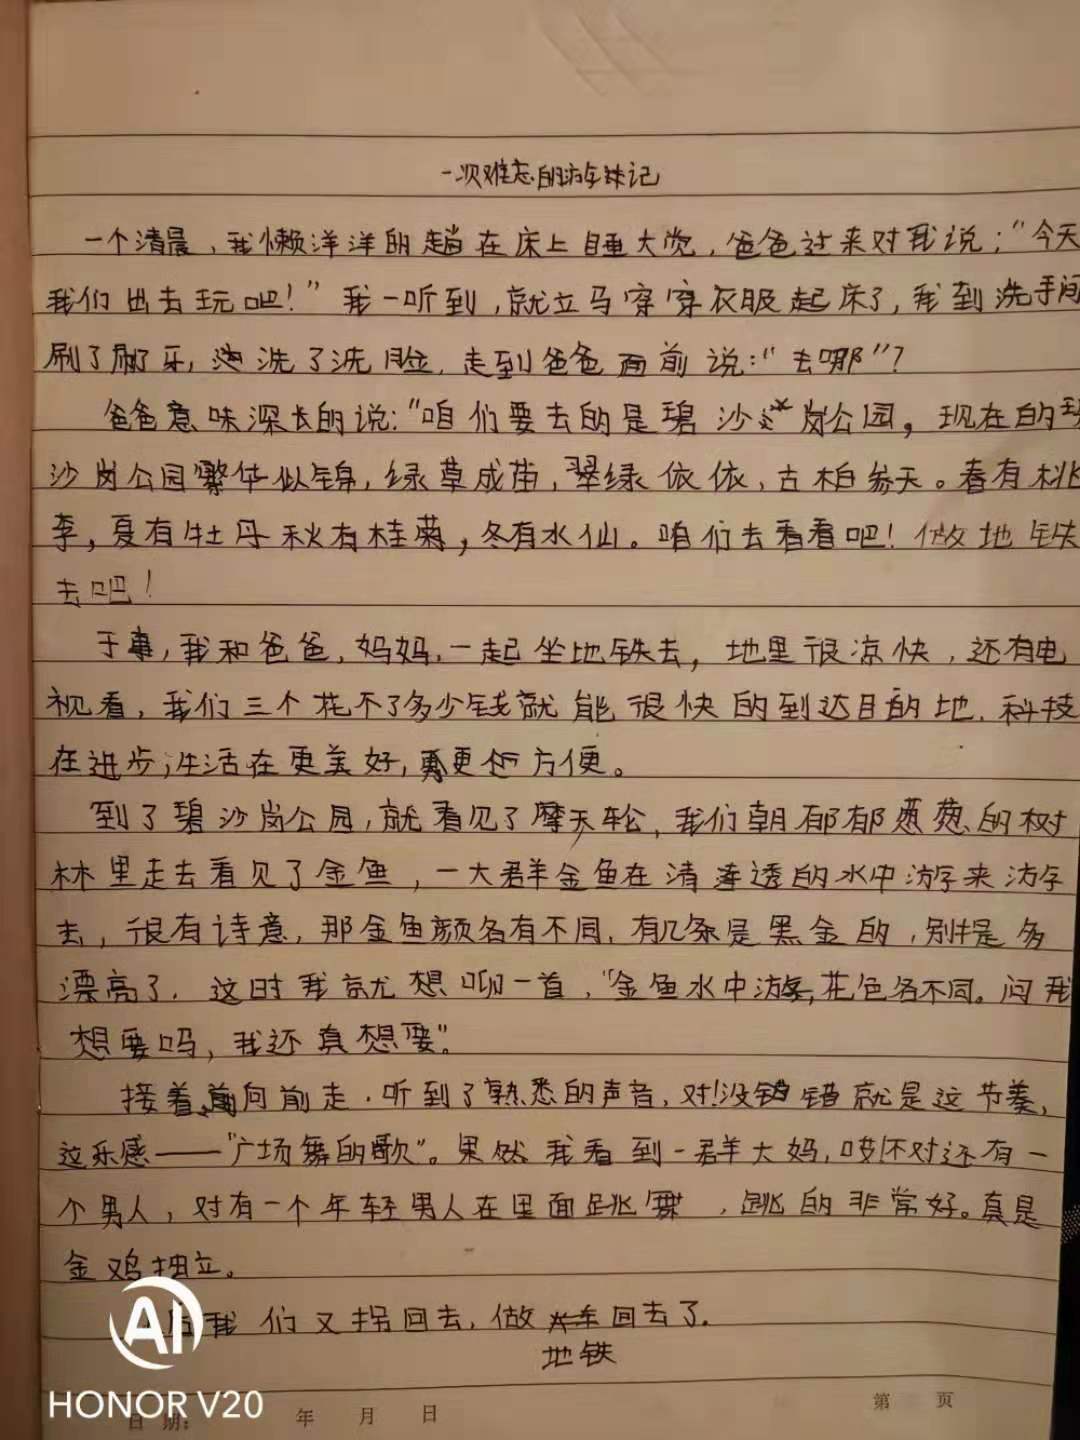 一次难忘的游记
一个清晨，我懒洋洋的趟在床上睡大觉，爸爸过来对我说："今天
我们出去玩吧！"我一听到，就立马穿穿衣服起床了，我到洗手间
刷了刷牙，洗了洗脸，走到爸爸面前说："去哪"？
爸爸意味深长的说："咱们要去的是碧沙岗公园，现在的碧
沙岗公园繁华似锦，绿草成苗，翠绿依依，古柏参天。春有桃
李，夏有牡丹秋有桂菊，冬有水仙。咱们去看看吧！做地铁
去吧！
于事，我和爸爸，妈妈，一起坐地铁去，地里很凉快，还有电
视看，我们三个花不了多少钱就能很快的到达目的地，科技
在进步，生活在更美好，更方便。
到了碧沙岗公园，就看见了摩天轮，我们朝郁郁葱葱的树
林里走去看见了金鱼，一大群金鱼在清透的水中游来游
去，很有诗意，那金鱼颜名有不同，有几条是黑金的，别提多
漂亮了，这时我就想吟一首，"金鱼水中游，花色名不同。问我
想要吗，我还真想要"。
接着向前走，听到了熟悉的声音，对！没错就是这节奏，
这乐感——"广场舞的歌"。果然我看到一群大妈，哎不对还有一
个男人，对有一个年轻男人在里面跳舞，跳的非常好。真是
金鸡独立。
后我们又拐回去，做回去了。
地铁
AI
HONOR V20
日期： 年 月 日
第 页